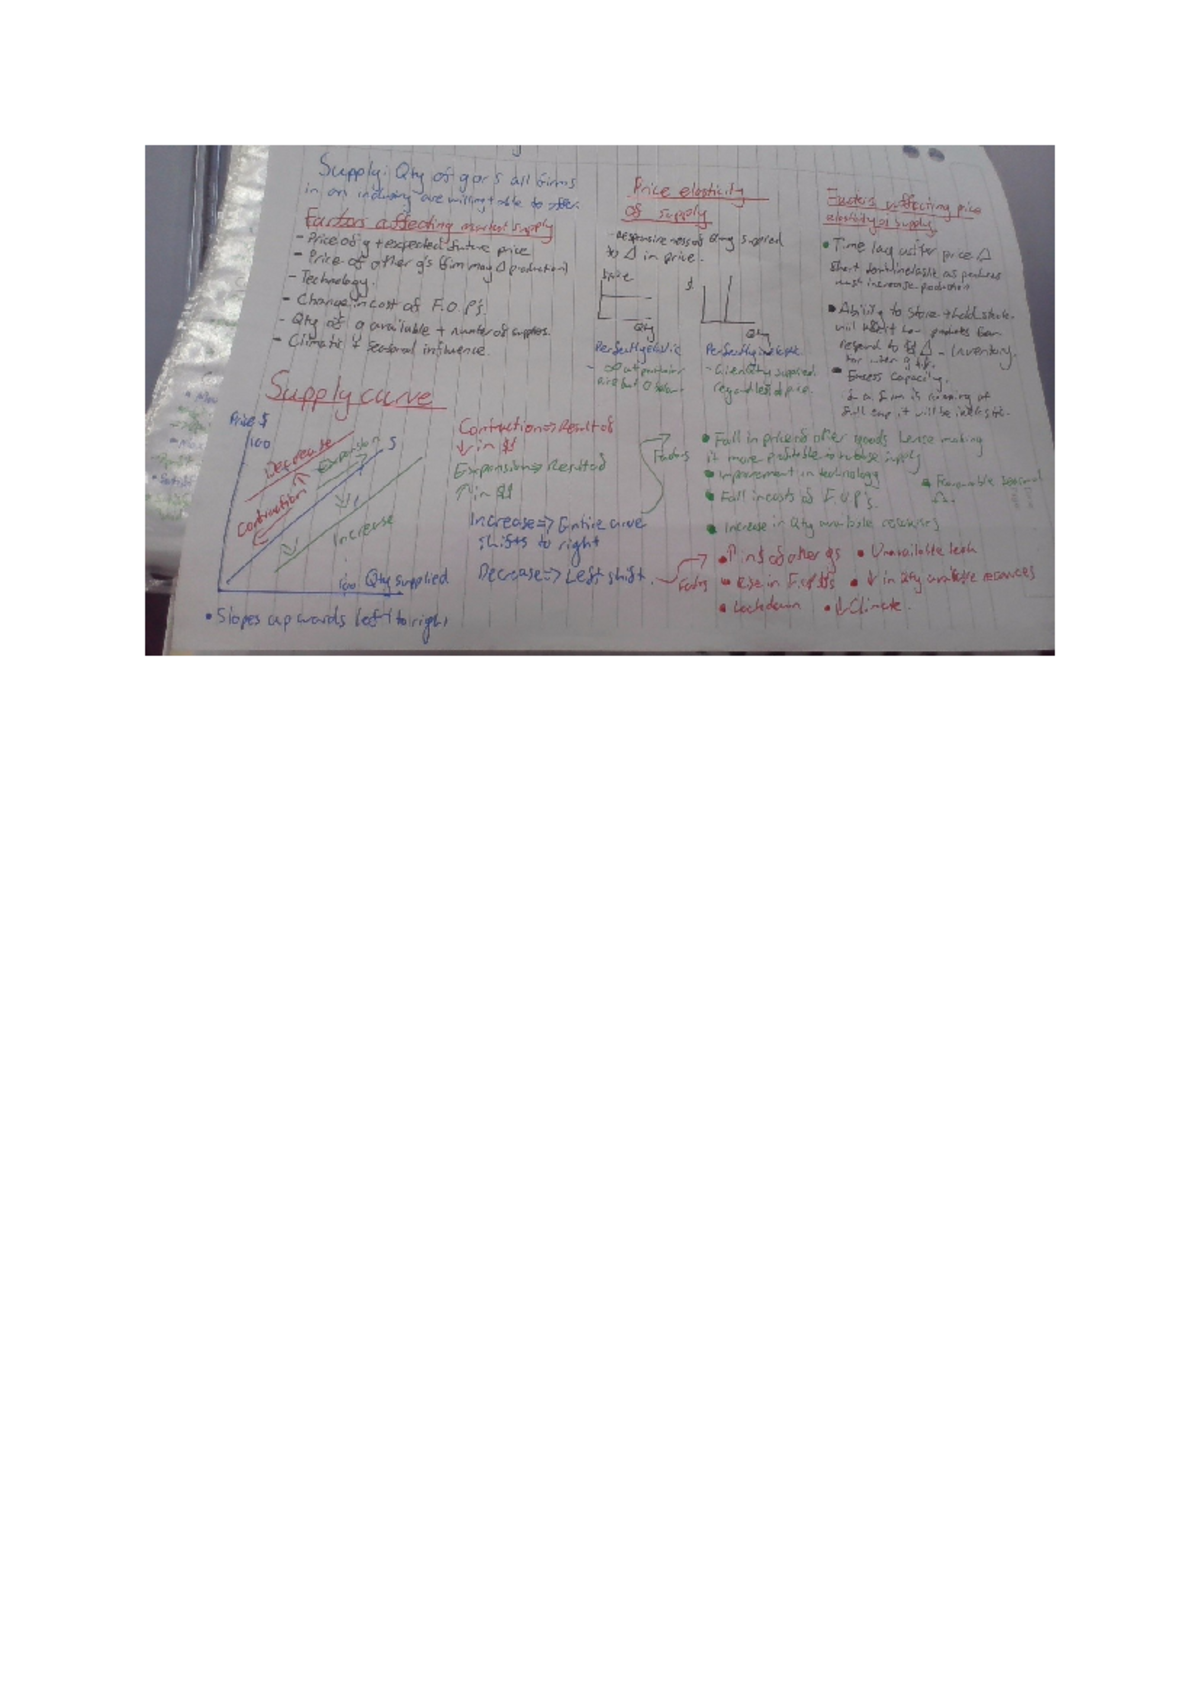 Supply: Qty of g or s all firms
in an industry are willing + able to offer.
Factors affecting market supply
- Price of g + expected future price
- Price of other g's (firm may Δ production)
- Technology.
- Change in cost of F.O.P's.
- Qty of g available + number of suppliers.
- Climatic + seasonal influence.
Price elasticity
of supply
- responsiveness of supplied
to Δ in price.
Price
Qty
Perfectly elastic
$
Qty
Perfectly inelastic
- Given Qty supplied
regardless of price.
Factors affecting price
elasticity of supply
• Time lag after price Δ
must increase production
• Ability to store + hold stock.
respond to $ Δ - Inventory.
• Excess capacity.
if a firm is running at
full cap, it will be inelastic.
Supply curve
Price $
100
Decrease
Expansion
S
Contraction
Increase
100 Qty supplied
• Slopes upwards left to right
Contraction => Result of
↓ in $$
Expansion => Result of
↑ in $$
Increase => Entire curve
shifts to right
Decrease => Left shift.
Factors
• Fall in price of other goods hence making
it more profitable to supply
• Improvement in technology
• Fall in costs of F.O.P's.
• Favourable seasonal
Δ.
• Increase in Qty available resources
Factors
• ↑ in $ of other gs
• Unavailable tech
• Rise in F.O.P $$
• ↓ in Qty available resources
• Lockdown
• ↓ Climate.